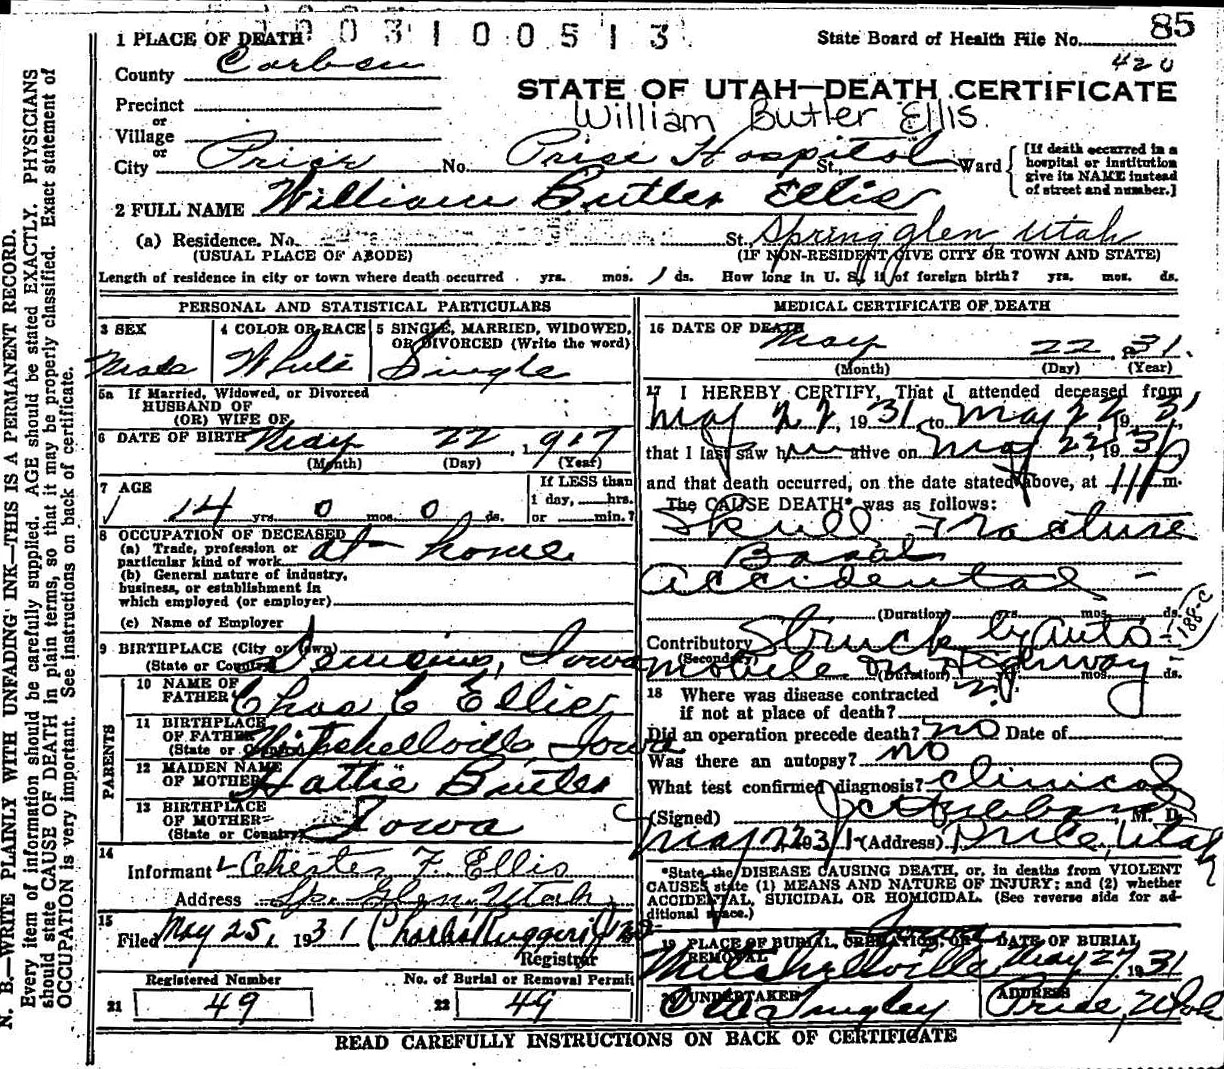 1003100513
85
1 PLACE OF DEATH State Board of Health File No.
420
County Carbon
STATE OF UTAH—DEATH CERTIFICATE
Precinct
or
William Butler Ellis
Village
or
City Price No. Price Hospital St., Ward
[If death occurred in a
hospital or institution
give its NAME instead
of street and number.]
2 FULL NAME William Butler Ellis
(a) Residence. No. St. Spring glen Utah
(USUAL PLACE OF ABODE) (IF NON-RESIDENT GIVE CITY OR TOWN AND STATE)
Length of residence in city or town where death occurred yrs. mos. 1 ds. How long in U. S. if of foreign birth? yrs. mos. ds.
PERSONAL AND STATISTICAL PARTICULARS
3 SEX 4 COLOR OR RACE 5 SINGLE, MARRIED, WIDOWED,
OR DIVORCED (Write the word)
Male White Single
5a If Married, Widowed, or Divorced
HUSBAND OF
(OR) WIFE OF
6 DATE OF BIRTH May 22, 1917
(Month) (Day) (Year)
7 AGE If LESS than
1 day, hrs.
14 yrs. 0 mos. 0 ds. or min.?
8 OCCUPATION OF DECEASED
(a) Trade, profession or
particular kind of work at home
(b) General nature of industry,
business, or establishment in
which employed (or employer)
(c) Name of Employer
9 BIRTHPLACE (City or town)
(State or Country) Iowa
PARENTS
10 NAME OF
FATHER Chas C Ellis
11 BIRTHPLACE
OF FATHER
(State or Country) Mitchellville Iowa
12 MAIDEN NAME
OF MOTHER Hattie Butler
13 BIRTHPLACE
OF MOTHER
(State or Country) Iowa
14
Informant Chester F. Ellis
Address Sp. Glen, Utah
15
Filed May 25, 1931 Charles Ruggeri
Registrar
Registered Number No. of Burial or Removal Permit
21 49 22 49
MEDICAL CERTIFICATE OF DEATH
16 DATE OF DEATH
May 22, 31.
(Month) (Day) (Year)
17 I HEREBY CERTIFY, That I attended deceased from
May 22, 1931 to May 22, 1931
that I last saw him alive on May 22, 1931
and that death occurred, on the date stated above, at 11 P m.
The CAUSE DEATH* was as follows:
Skull Fracture
Basal
Accidental -
(Duration) yrs. mos. ds.
188-C
Contributory Struck by Auto-
(Secondary)
mobile on Highway
(Duration) yrs. mos. ds.
18 Where was disease contracted
if not at place of death?
Did an operation precede death? no Date of
Was there an autopsy? no
What test confirmed diagnosis? Clinical
(Signed) J C Hubbard, M. D.
May 22 1931 (Address) Price, Utah
*State the DISEASE CAUSING DEATH, or, in deaths from VIOLENT
CAUSES state (1) MEANS AND NATURE OF INJURY; and (2) whether
ACCIDENTAL, SUICIDAL OR HOMICIDAL. (See reverse side for ad-
ditional space.)
19 PLACE OF BURIAL, CREMATION, OR DATE OF BURIAL
REMOVAL
Mitchellville Iowa May 27 1931
20 UNDERTAKER ADDRESS
Price, Utah
READ CAREFULLY INSTRUCTIONS ON BACK OF CERTIFICATE
N. B.—WRITE PLAINLY WITH UNFADING INK—THIS IS A PERMANENT RECORD.
Every item of information should be carefully supplied. AGE should be stated EXACTLY. PHYSICIANS
should state CAUSE OF DEATH in plain terms, so that it may be properly classified. Exact statement of
OCCUPATION is very important. See instructions on back of certificate.